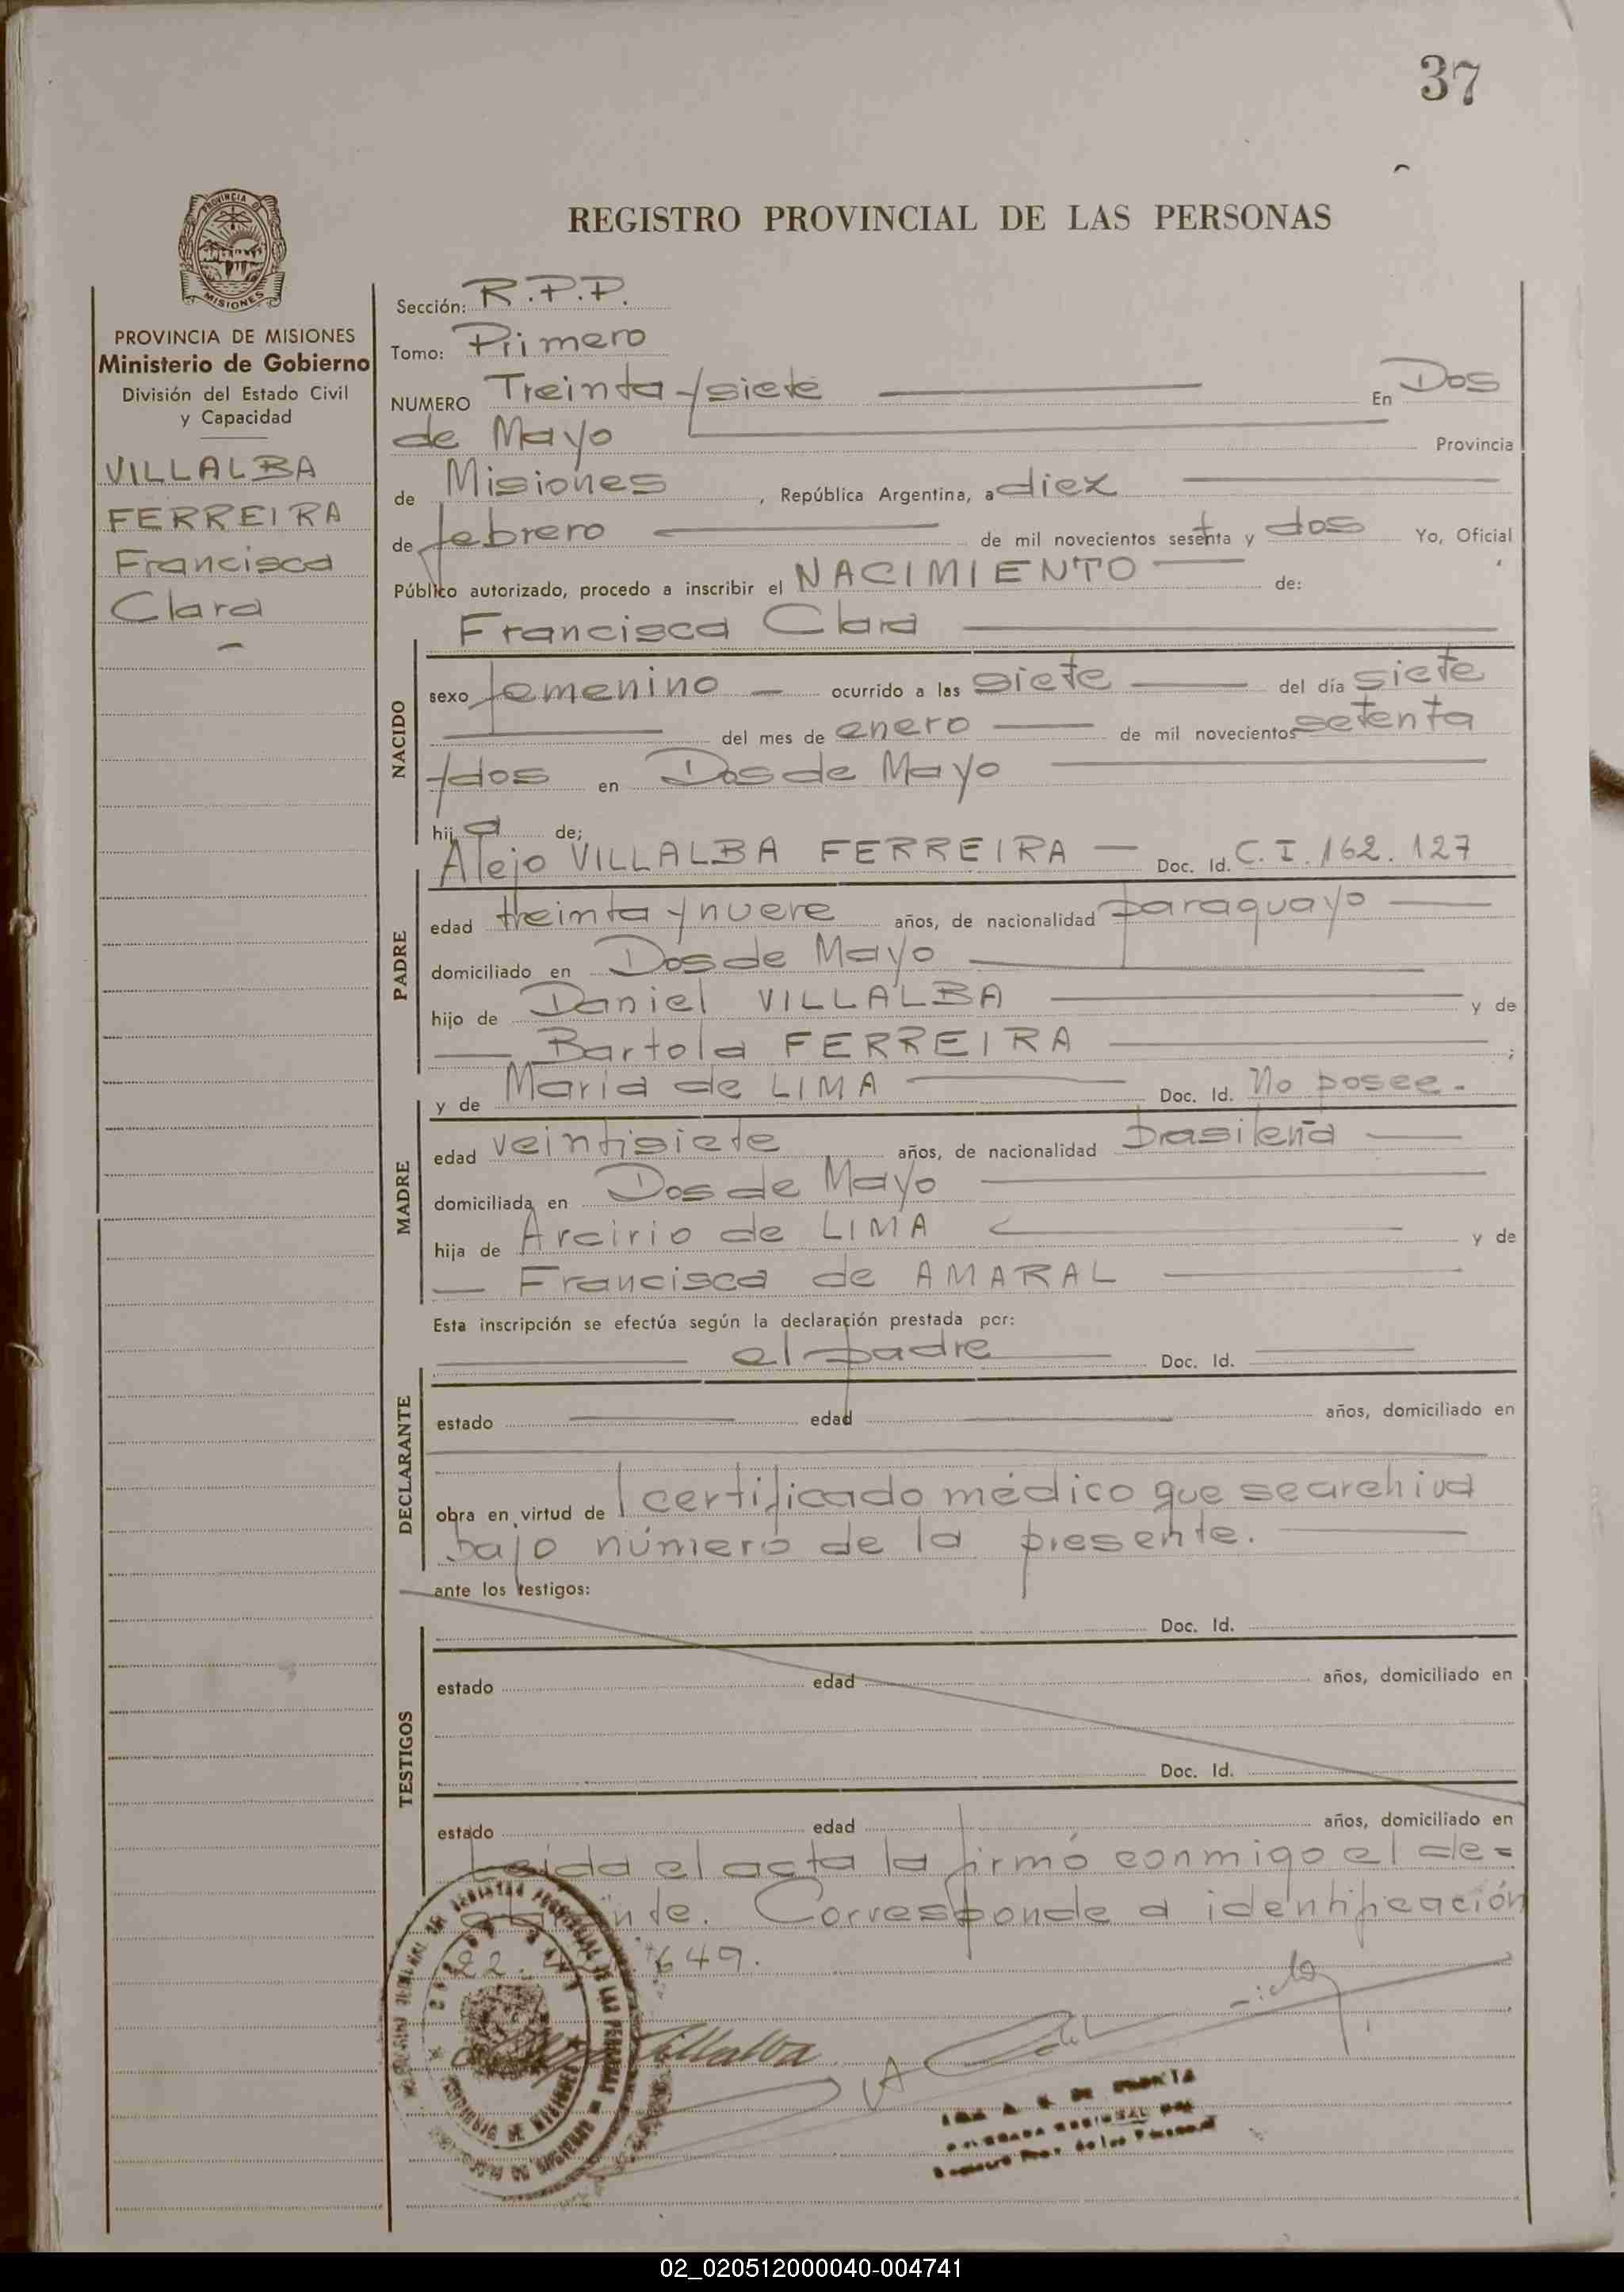 37
REGISTRO PROVINCIAL DE LAS PERSONAS
PROVINCIA DE
MISIONES
PROVINCIA DE MISIONES
Ministerio de Gobierno
División del Estado Civil
y Capacidad
VILLALBA
FERREIRA
Francisca
Clara
Sección: R.P.P.
Tomo: Primero
NUMERO Treinta y siete En Dos
de Mayo Provincia
de Misiones, República Argentina, a diez
de febrero de mil novecientos sesenta y dos Yo, Oficial
Público autorizado, procedo a inscribir el NACIMIENTO de:
Francisca Clara
NACIDO
sexo femenino ocurrido a las siete del día siete
del mes de enero de mil novecientos setenta
y dos en Dos de Mayo
hija de;
Alejo VILLALBA FERREIRA Doc. Id. C.I. 162.127
PADRE
edad treinta y nueve años, de nacionalidad paraguayo
domiciliado en Dos de Mayo
hijo de Daniel VILLALBA y de
Bartola FERREIRA ;
y de Maria de LIMA Doc. Id. No posee.
MADRE
edad veintisiete años, de nacionalidad brasileña
domiciliada en Dos de Mayo
hija de Arcirio de LIMA y de
Francisca de AMARAL
Esta inscripción se efectúa según la declaración prestada por:
el padre Doc. Id.
DECLARANTE
estado edad años, domiciliado en
obra en virtud de l certificado médico que se archiva
bajo número de la presente.
ante los testigos:
Doc. Id.
TESTIGOS
estado edad años, domiciliado en
Doc. Id.
estado edad años, domiciliado en
Leida el acta la firmó conmigo el de=
nte. Corresponde a identificación
22. 649.
Villalba
02_020512000040-004741